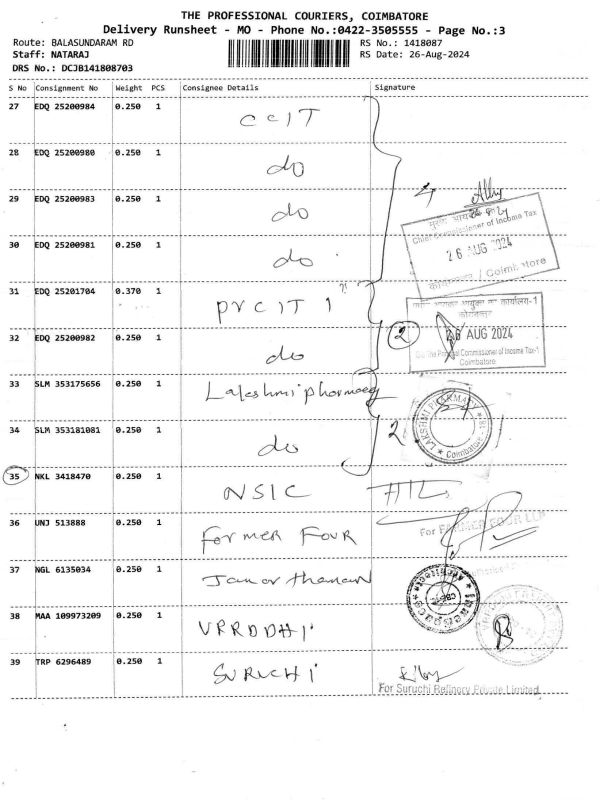 THE PROFESSIONAL COURIERS, COIMBATORE
Delivery Runsheet - MO - Phone No.:0422-3505555 - Page No.:3
Route: BALASUNDARAM RD RS No.: 1418087
Staff: NATARAJ RS Date: 26-Aug-2024
DRS No.: DCJB141808703
S No Consignment No Weight PCS Consignee Details Signature
27 EDQ 25200984 0.250 1 CCIT
28 EDQ 25200980 0.250 1 do
29 EDQ 25200983 0.250 1 do
4
Chief Commissioner of Income Tax
30 EDQ 25200981 0.250 1 do
26 AUG 2024
/ Coimbatore
31 EDQ 25201704 0.370 1 PrCIT 1
32 EDQ 25200982 0.250 1 do
2 26 AUG 2024
Commissioner of Income Tax-1
Coimbatore
33 SLM 353175656 0.250 1 Lakshmi pharmacy
LAKSHMI PHARMA
Coimbatore
34 SLM 353181081 0.250 1 do 2
35 NKL 3418470 0.250 1 NSIC
36 UNJ 513888 0.250 1 Farmer Four
For FARMER FOUR LLP
37 NGL 6135034 0.250 1
38 MAA 109973209 0.250 1 VRRDDHI
39 TRP 6296489 0.250 1 SURUCHI
For Suruchi Refinery Private Limited